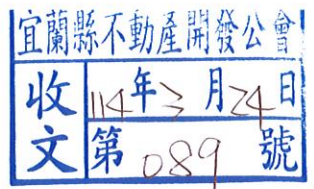 宜蘭縣不動產開發公會
收文
114年3月24日
第089號